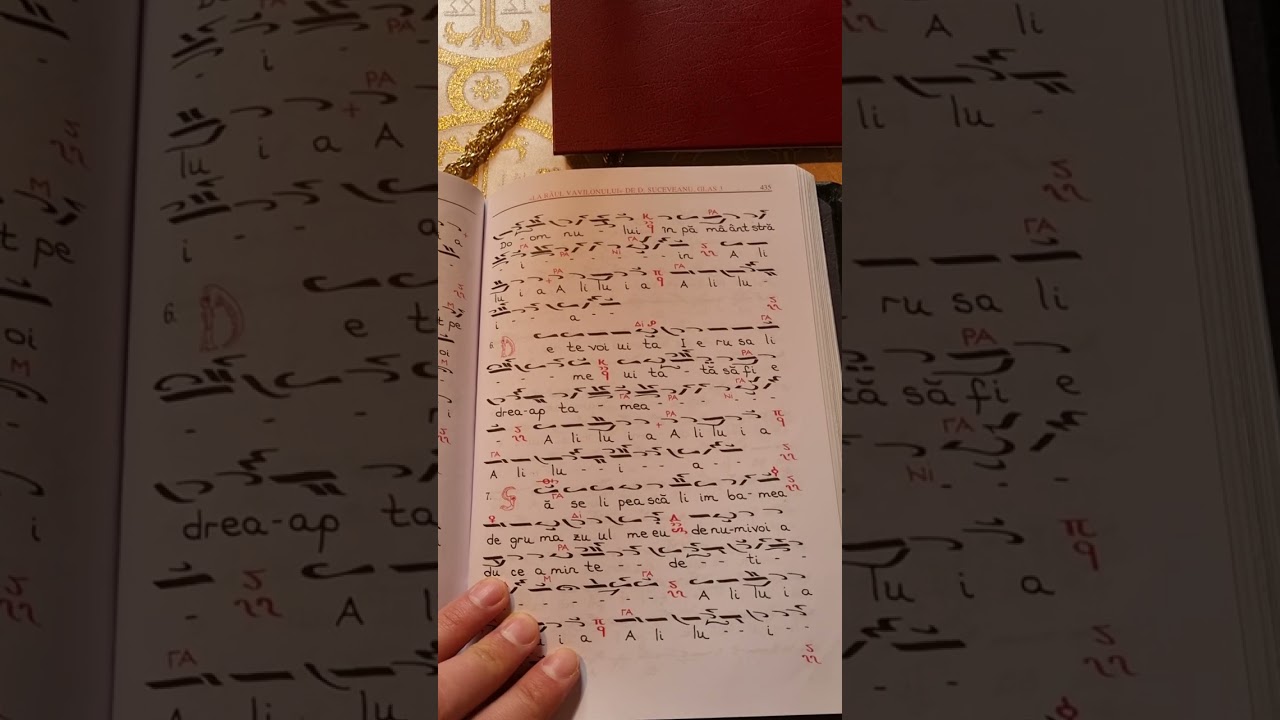 „LA RÂUL VAVILONULUI" DE D. SUCEVEANU, GLAS 3 435
Do - om nu - - lui în pă mâ ânt stră
i - - - - - - - - in A li
lu i a A li lu i a A li lu -
i - - a - -
6. D e te voi ui ta I e ru sa li
- - - - me ui ta - tă să fi e
drea-ap ta - - mea - - - -
- A li lu i a A li lu i a
A li lu - - i - - a -
7. S ă se li pească li im ba - mea
de gru ma zu ul me eu de nu mi voi a
du ce a min te - - de - - ti - -
- - - - - - A li lu i a
i a A li lu - - i - -